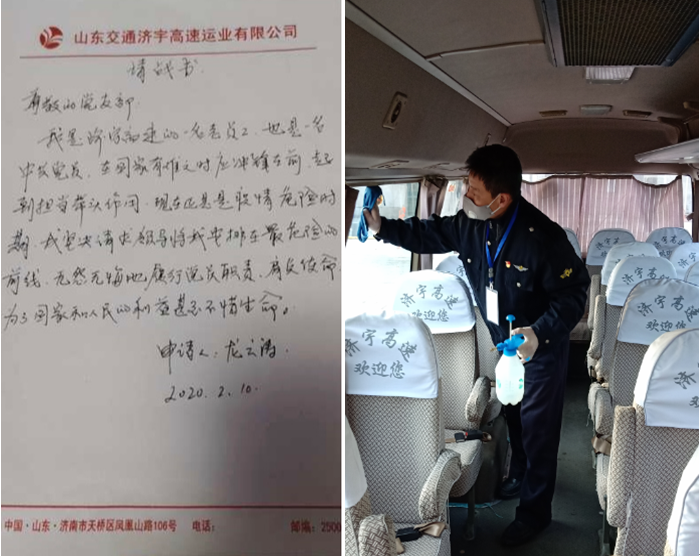 山东交通济宇高速运业有限公司
请战书
尊敬的党支部
我是济宇高速的一名老员工，也是一名
中共党员，在国家有难之时应冲锋在前，起
到担当带头作用，现在正是疫情危险时
期，我坚决请求领导将我安排在最危险的
前线，无怨无悔地履行党员职责，肩负使命
为了国家和人民的利益甚至不惜生命。
申请人：龙云涛
2020.2.10.
中国·山东·济南市天桥区凤凰山路106号 电话： 邮编：2500
济宇高速
欢迎您
济宇高速
欢迎您
济宇高速
欢迎您